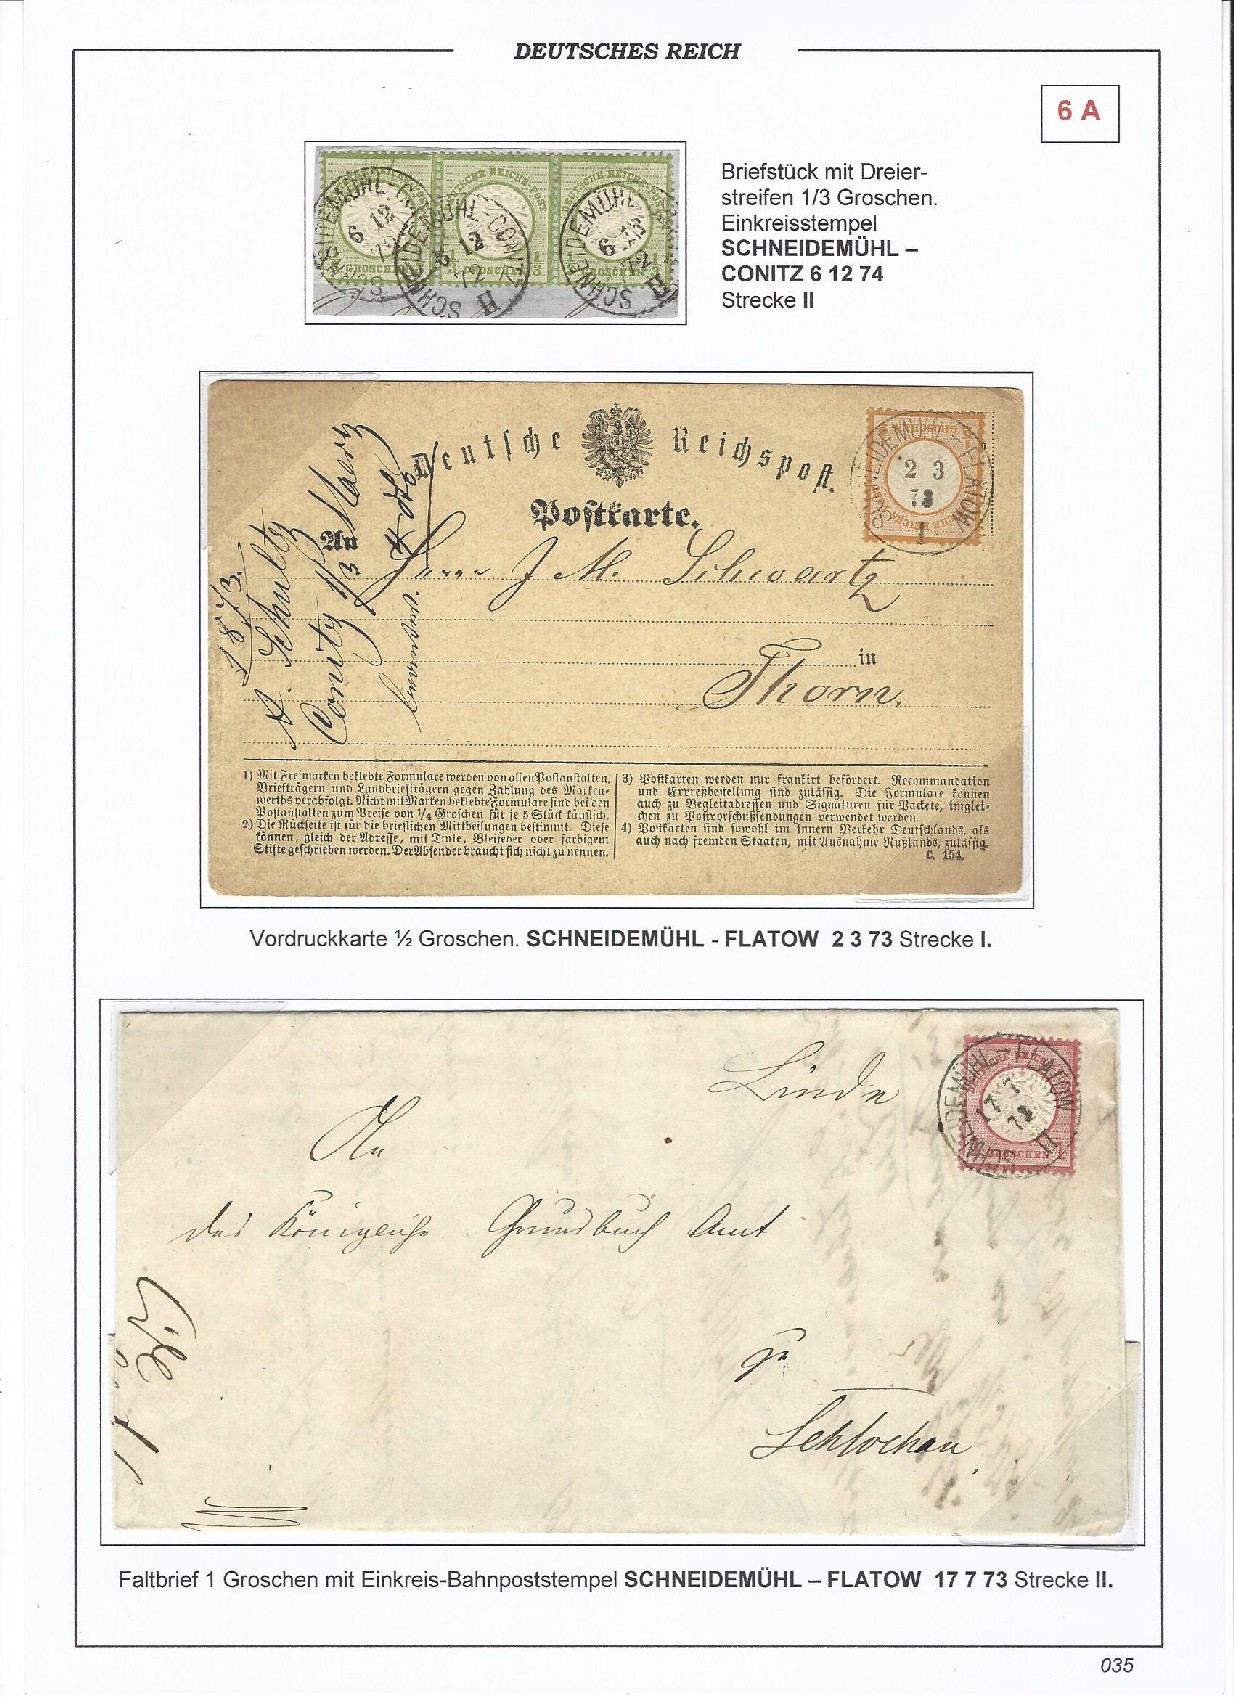 DEUTSCHES REICH
6 A
Briefstück mit Dreier-
streifen 1/3 Groschen.
Einkreisstempel
SCHNEIDEMÜHL –
CONITZ 6 12 74
Strecke II
SCHNEIDEMÜHL-CONITZ
6 12
72
II
Deutsche Reichspost.
Postkarte.
SCHNEIDEMÜHL-FLATOW
2 3
73
I
An
Herrn J. M. Schwartz
in
Thorn.
1873.
A. Schultz
Conitz 1/3
1) Mit Freimarken beklebte Formulare werden von allen Postanstalten,
Briefträgern und Landbriefträgern gegen Zahlung des Marken-
werths verabfolgt. Nicht mit Marken beklebte Formulare sind bei den
Postanstalten zum Preise von 1/4 Groschen für je 5 Stück käuflich.
2) Die Rückseite ist für die brieflichen Mittheilungen bestimmt. Diese
können, gleich der Adresse, mit Tinte, Bleifeder oder farbigem
Stifte geschrieben werden. Der Absender braucht sich nicht zu nennen.
3) Postkarten werden nur frankirt befördert. Recommandation
und Expreßbestellung sind zulässig. Die Formulare können
auch zu Begleitadressen und Signaturen für Packete, imglei-
chen zu Postvorschußsendungen verwendet werden.
4) Postkarten sind sowohl im innern Verkehr Deutschlands, als
auch nach fremden Staaten, mit Ausnahme Rußlands, zulässig.
C. 154.
Vordruckkarte ½ Groschen. SCHNEIDEMÜHL - FLATOW 2 3 73 Strecke I.
Linde
SCHNEIDEMÜHL-FLATOW
17 7
73
II
An
das Königliche Grundbuch Amt
zu
Schlochau
Faltbrief 1 Groschen mit Einkreis-Bahnpoststempel SCHNEIDEMÜHL – FLATOW 17 7 73 Strecke II.
035